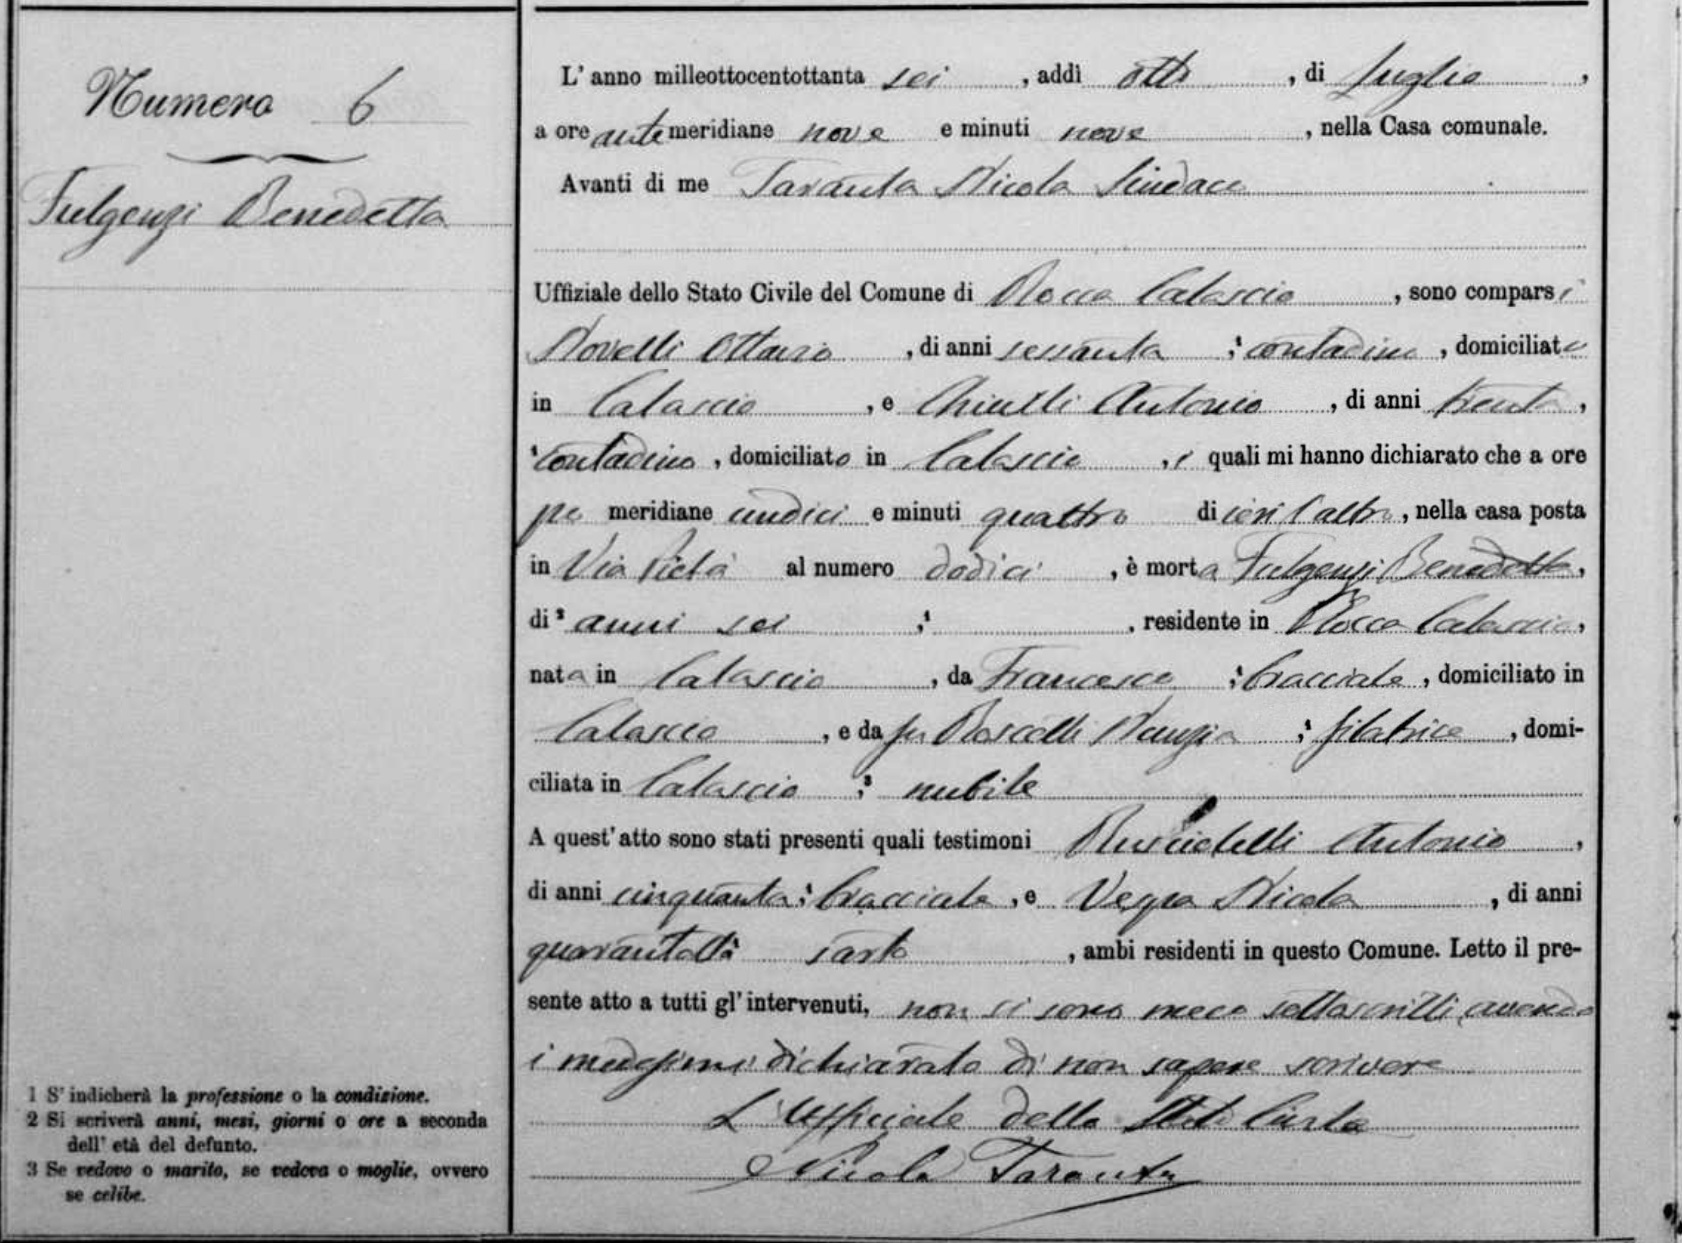 Numero 6
Fulgenzi Benedetta
1 S' indicherà la professione o la condizione.
2 Si scriverà anni, mesi, giorni o ore a seconda
dell' età del defunto.
3 Se vedovo o marito, se vedova o moglie, ovvero
se celibe.
L' anno milleottocentottanta sei , addì otto , di Luglio ,
a ore antemeridiane nove e minuti nove , nella Casa comunale.
Avanti di me Taranta Nicola Sindaco
Uffiziale dello Stato Civile del Comune di Rocca Calascio , sono comparsi
Novelli Ottavio , di anni sessanta ,¹ contadino , domiciliato
in Calascio , e Chiulli Antonio , di anni trenta ,
¹ contadino , domiciliato in Calascio , i quali mi hanno dichiarato che a ore
po meridiane undici e minuti quattro di ieri l'altro , nella casa posta
in Via Pietà al numero dodici , è morta Fulgenzi Benedetta ,
di ² anni sei ,¹ , residente in Rocca Calascio ,
nata in Calascio , da Francesco ,¹ bracciale , domiciliato in
Calascio , e da fu Nunzia ,¹ filatrice , domi-
ciliata in Calascio ,³ nubile
A quest' atto sono stati presenti quali testimoni Antonio ,
di anni cinquanta ,¹ bracciale , e Nicola , di anni
quarantotto sarto , ambi residenti in questo Comune. Letto il pre-
sente atto a tutti gl' intervenuti, non si sono meco sottoscritti avendo
i medesimi dichiarato di non sapere scrivere
L'Ufficiale dello Stato Civile
Nicola Taranta